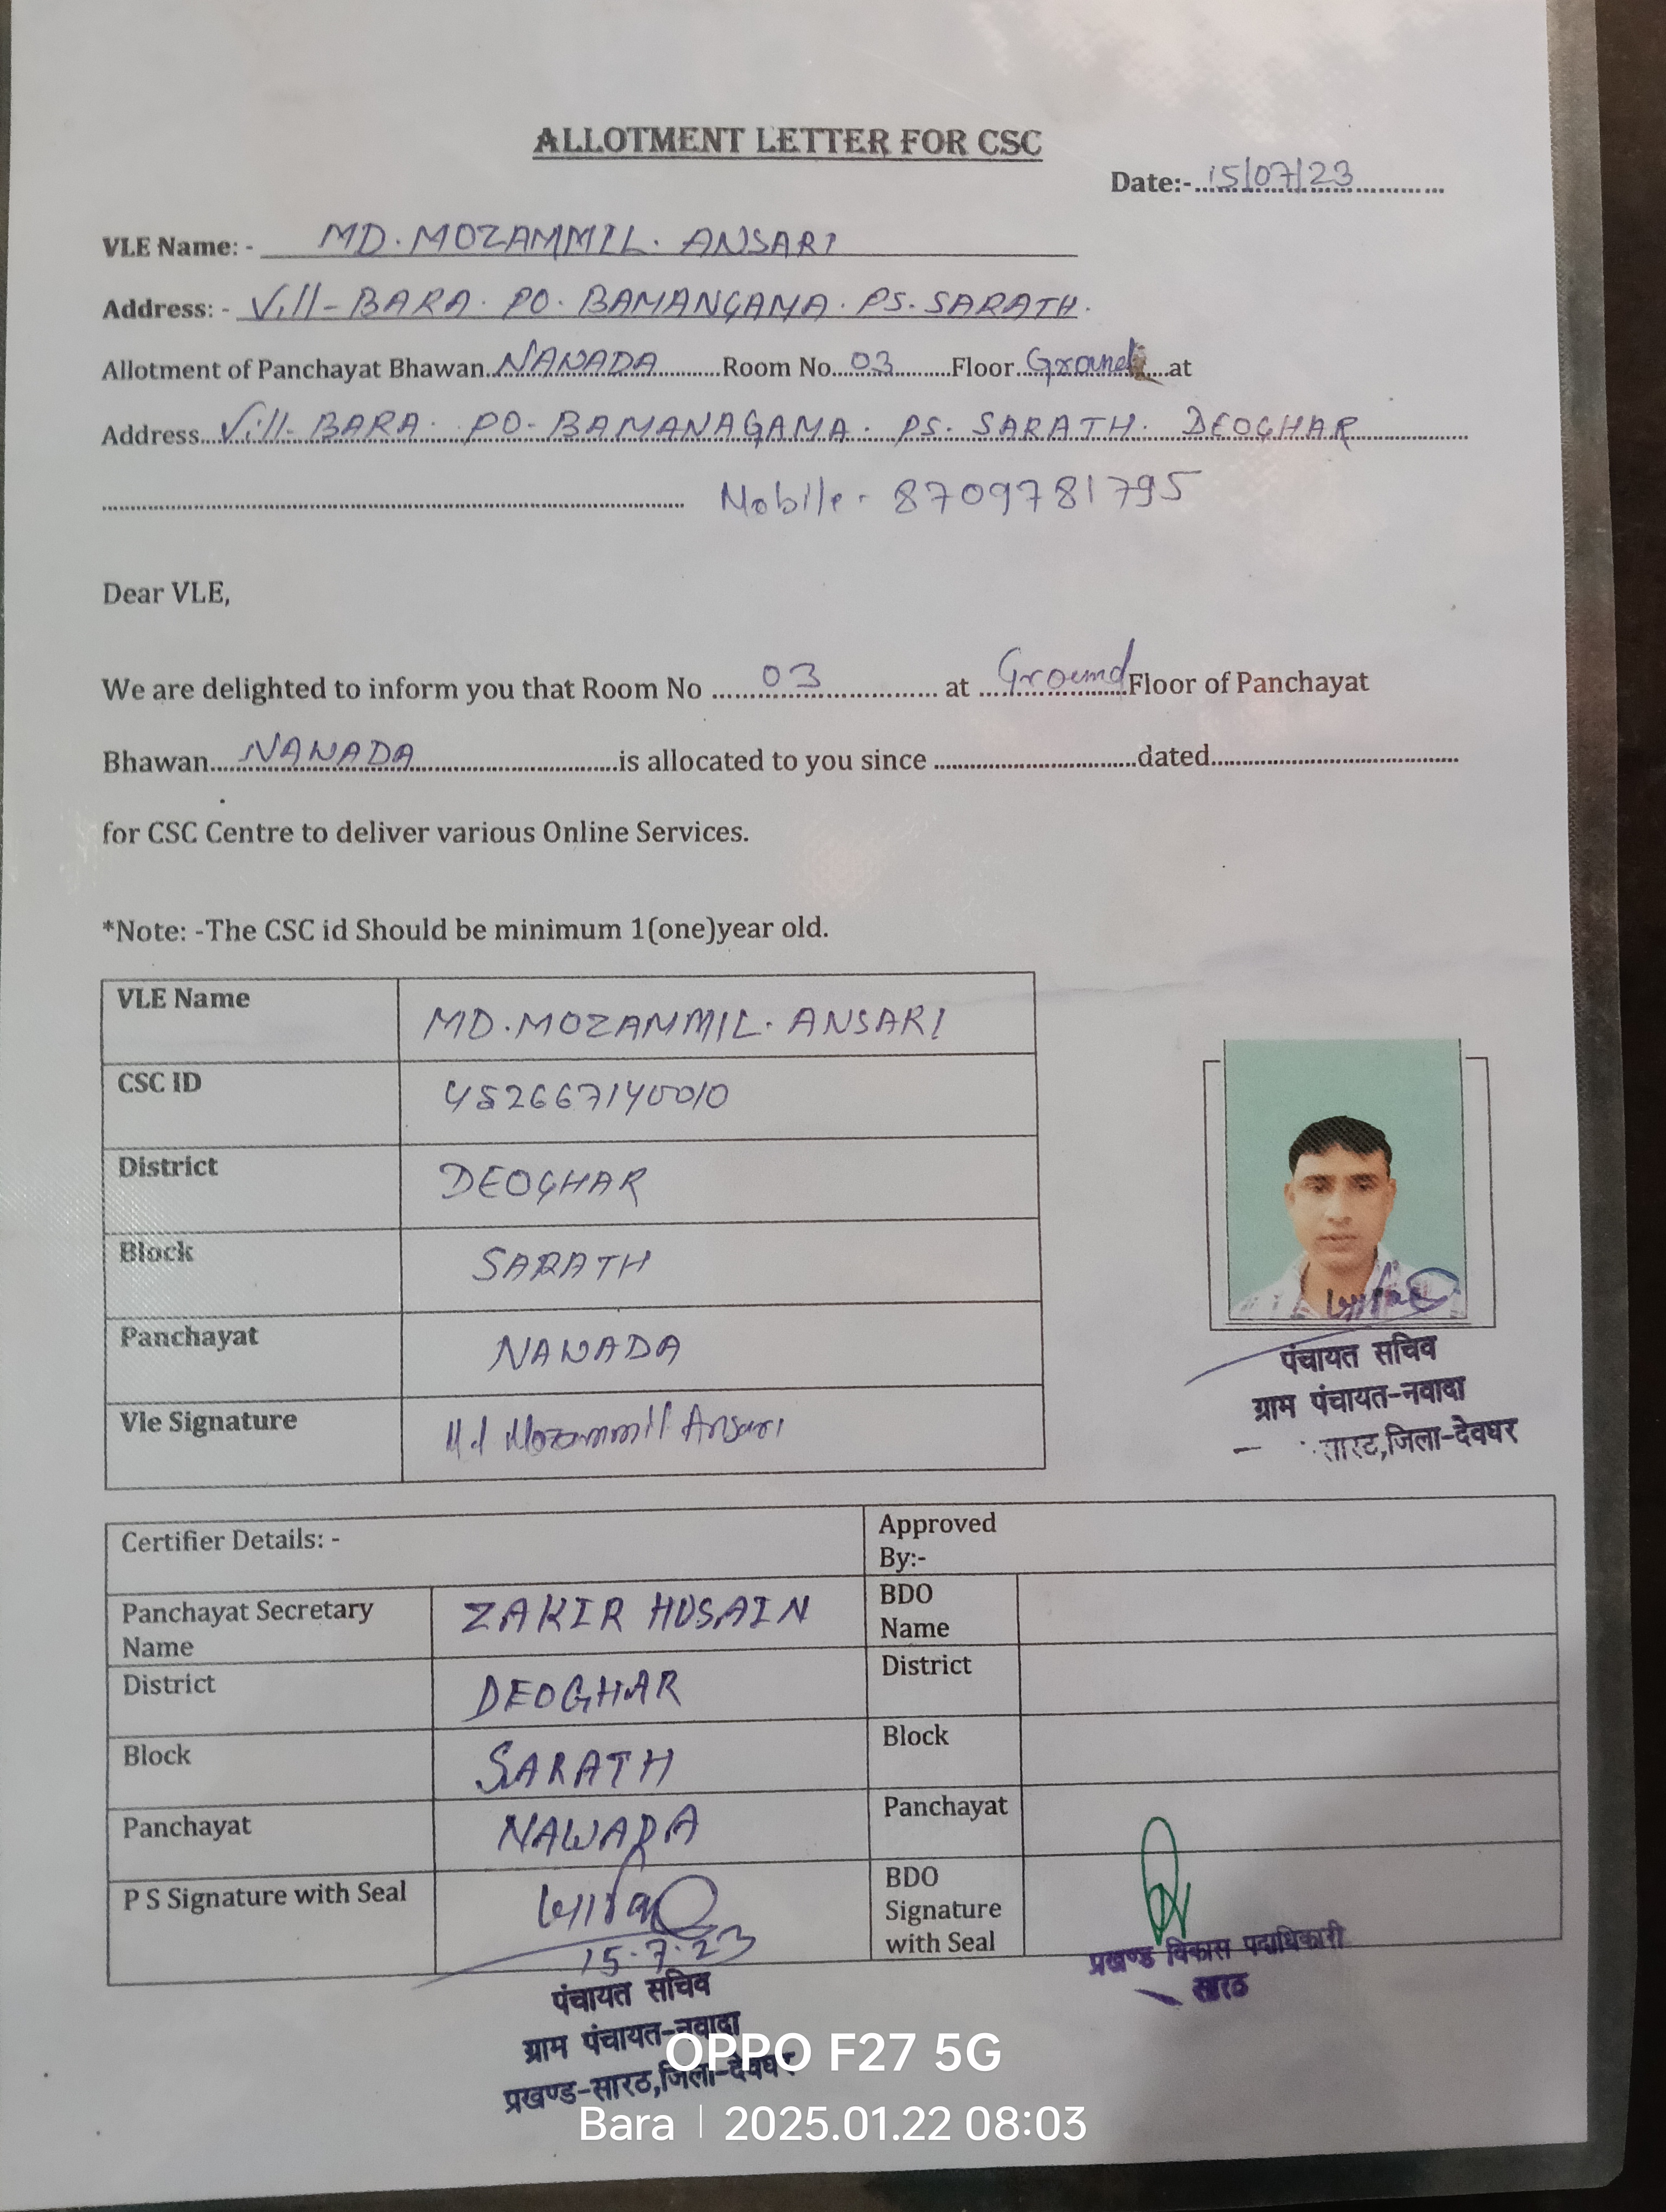 ALLOTMENT LETTER FOR CSC
Date:- 15/07/23
VLE Name: - MD. MOZAMMIL. ANSARI
Address: - Vill- BARA. PO. BAMANGAMA. PS. SARATH.
Allotment of Panchayat Bhawan NAWADA Room No. 03 Floor Ground at
Address Vill- BARA. PO- BAMANAGAMA. PS. SARATH. DEOGHAR
Mobile - 8709781795
Dear VLE,
We are delighted to inform you that Room No 03 at Ground Floor of Panchayat
Bhawan NAWADA is allocated to you since dated
for CSC Centre to deliver various Online Services.
*Note: -The CSC id Should be minimum 1(one)year old.
VLE Name MD. MOZAMMIL. ANSARI
CSC ID
District DEOGHAR
Block SARATH
Panchayat NAWADA
Vle Signature Md Mozammil Ansari
पंचायत सचिव
ग्राम पंचायत-नवादा
जिला-देवघर
Certifier Details: -
Approved By:-
Panchayat Secretary Name ZAKIR HUSAIN
BDO Name
District DEOGHAR
District
Block SARATH
Block
Panchayat NAWADA
Panchayat
P S Signature with Seal
15.7.23
BDO Signature with Seal
पंचायत सचिव
ग्राम पंचायत-नवादा
प्रखण्ड-सारठ,जिला-देवघर
प्रखण्ड विकास पदाधिकारी
सारठ
OPPO F27 5G
Bara | 2025.01.22 08:03